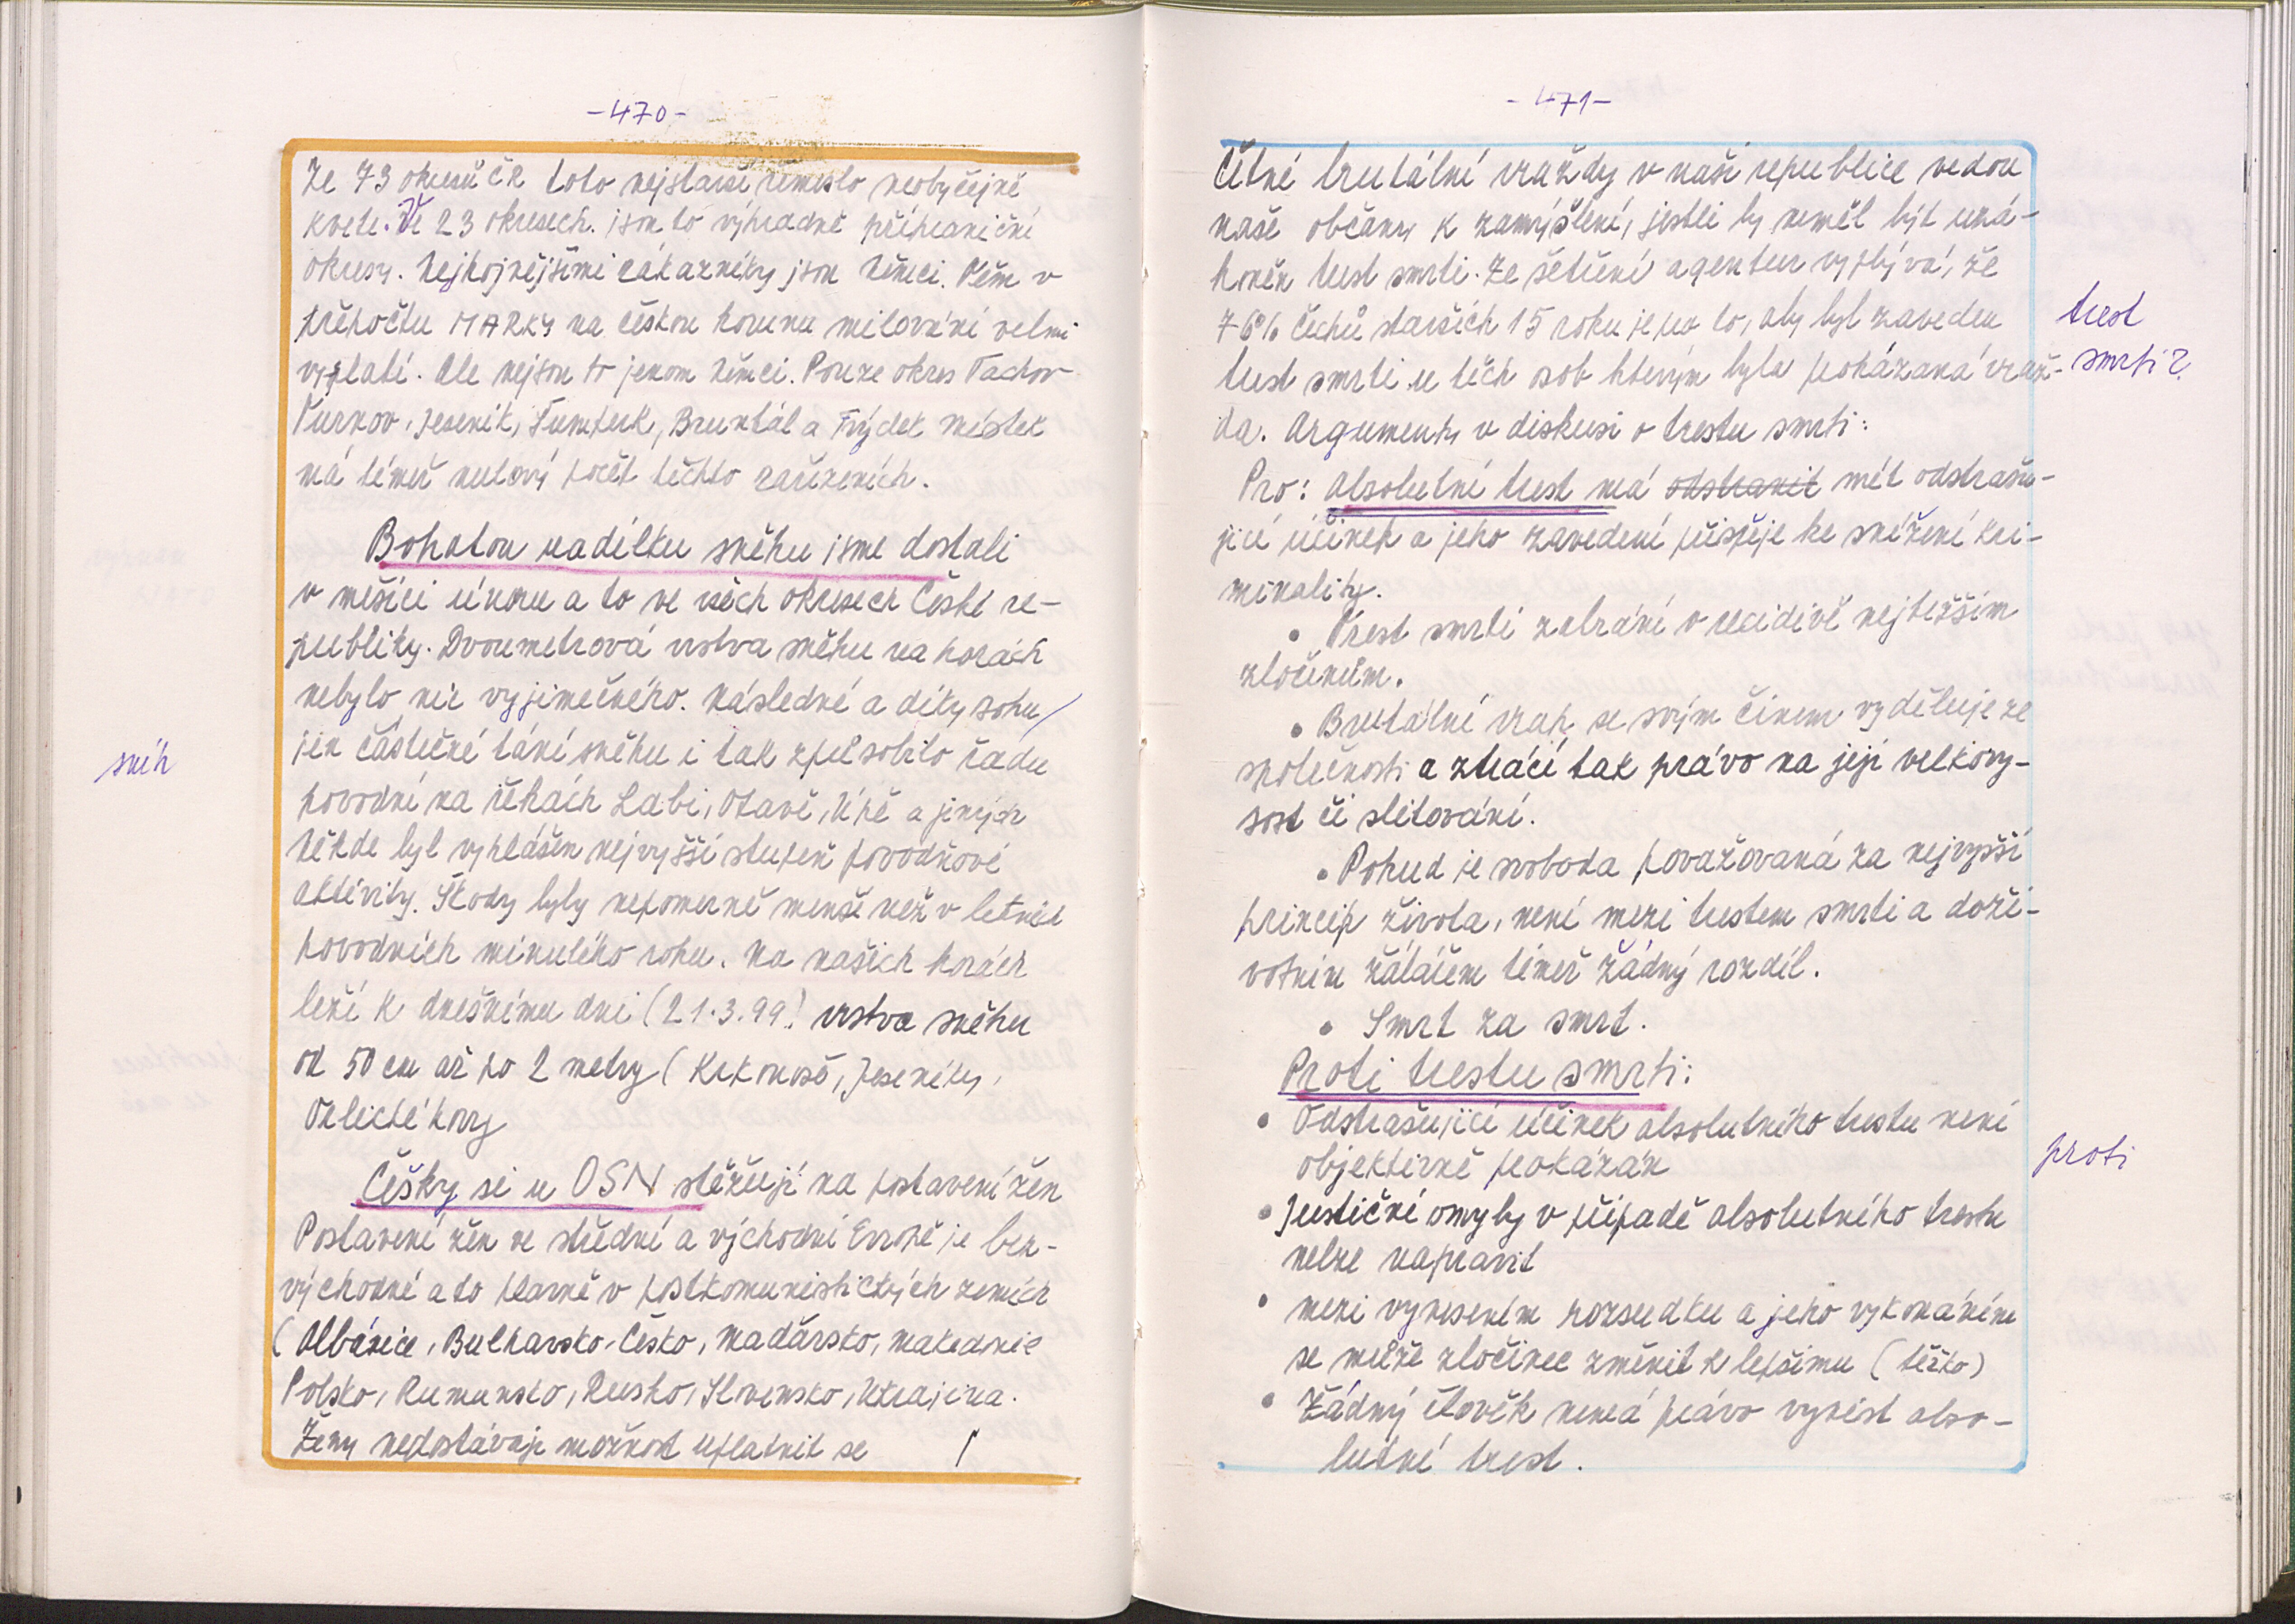 -470-
Ze 73 okresů ČR toto nejstarší řemeslo neobyčejně
kvete. Ve 23 okresech. jsou to výhradně příhraniční
okresy. Nejhojnějšími zákazníky jsou Němci. Těm v
přepočtu MARKY na českou korunu milování velmi
vyplatí. Ale nejsou to jenom Němci. Pouze okres Tachov
Turnov, Jeseník, Šumperk, Bruntál a Frýdek Místek
má téměř nulový počet těchto zařízeních.
Bohatou nadílku sněhu jsme dostali
v měsíci únoru a to ve všech okresech České re-
publiky. Dvoumetrová vrstva sněhu na horách
nebylo nic vyjimečného. Následné a díky bohu
jen částečné tání sněhu i tak způsobilo řadu
povodní na řekách Labi, Otavě, Úpě a jiných
Někde byl vyhlášen nejvyšší stupeň povodňové
aktivity. Škody byly nepoměrně menší než v letních
povodních minulého roku. Na našich horách
leží k dnešnímu dni (21.3.99) vrstva sněhu
od 50 cm až po 2 metry (Krkonoš, Jeseníky,
Orlické hory
sníh
Češky si u OSN stěžují na postavení žen
Postavení žen ve střední a východní Evropě je bez-
východné a to hlavně v postkomunistických zemích
(Albánie, Bulharsko, Česko, Maďarsko, Makedonie
Polsko, Rumunsko, Rusko, Slovensko, Ukrajina.
Ženy nedostávaji možnost uplatnit se
-471-
Četné brutální vraždy v naší republice vedou
naše občany k zamýšlení, jestli by neměl být uzá-
koněn trest smrti. Ze šetření agentur vyplývá, že
76% Čechů starších 15 roku je pro to, aby byl zaveden
trest smrti u těch osob kterým byla prokázaná vraž-
da. Argumenty v diskusi o trestu smrti:
trest
smrti?
Pro: absolutní trest má odstranit mít odstrašu-
jící účinek a jeho zavedení přispěje ke snížení kri-
minality.
• Trest smrti zabrání v recidivě nejtežším
zločinům.
• Brutální vrah se svým činem vyděluje ze
společnosti a ztrácí tak právo na její velkory-
sost či slitování.
• Pokud je svoboda považovaná za nejvyšší
princip života, není mezi trestem smrti a doži-
votním žálářem téměř žádný rozdíl.
• Smrt za smrt.
Proti trestu smrti:
• Odstrašující účinek absolutního trestu není
objektivně prokázán
proti
• Justiční omyly v případě absolutního trestu
nelze napravit
• mezi vynesením rozsudku a jeho vykonáním
se může zločinec změnit k lepšímu (těžko)
• Žádný člověk nemá právo vynést abso-
lutní trest.